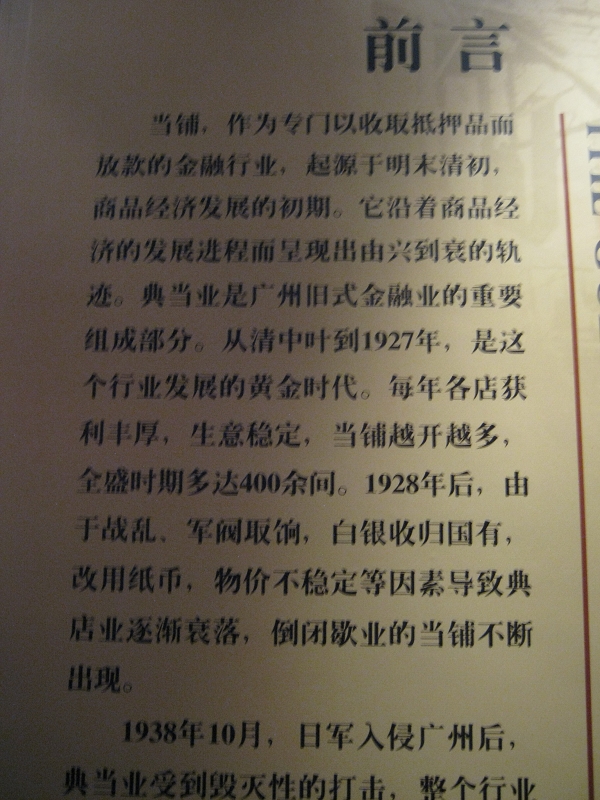 前言
当铺，作为专门以收取抵押品而
放款的金融行业，起源于明末清初，
商品经济发展的初期。它沿着商品经
济的发展进程而呈现出由兴到衰的轨
迹。典当业是广州旧式金融业的重要
组成部分。从清中叶到1927年，是这
个行业发展的黄金时代。每年各店获
利丰厚，生意稳定，当铺越开越多，
全盛时期多达400余间。1928年后，由
于战乱、军阀取饷，白银收归国有，
改用纸币，物价不稳定等因素导致典
店业逐渐衰落，倒闭歇业的当铺不断
出现。
1938年10月，日军入侵广州后，
典当业受到毁灭性的打击，整个行业
THE